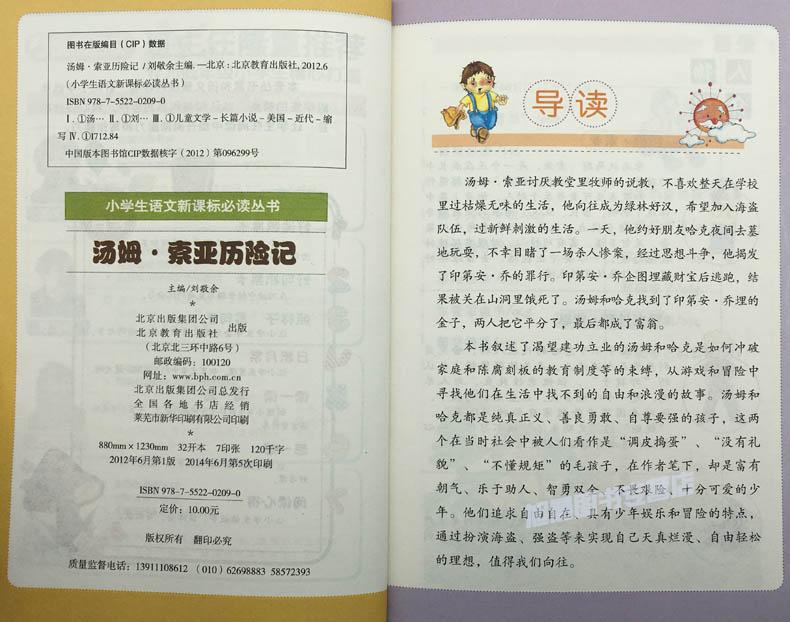 图书在版编目（CIP）数据
汤姆·索亚历险记 / 刘敬余主编. —北京：北京教育出版社，2012.6
（小学生语文新课标必读丛书）
ISBN 978-7-5522-0209-0
Ⅰ.①汤… Ⅱ.①刘… Ⅲ.①儿童文学－长篇小说－美国－近代－缩
写 Ⅳ.①I712.84
中国版本图书馆CIP数据核字（2012）第096299号
小学生语文新课标必读丛书
汤姆·索亚历险记
主编/刘敬余
*
北京出版集团公司
北京教育出版社
出版
（北京北三环中路6号）
邮政编码：100120
网址：www.bph.com.cn
北京出版集团公司总发行
全国各地书店经销
莱芜市新华印刷有限公司印刷
*
880mm×1230mm 32开本 7印张 120千字
2012年6月第1版 2014年6月第5次印刷
ISBN 978-7-5522-0209-0
定价：10.00元
版权所有 翻印必究
质量监督电话：13911108612 （010）62698883 58572393
导读
汤姆·索亚讨厌教堂里牧师的说教，不喜欢整天在学校
里过枯燥无味的生活，他向往成为绿林好汉，希望加入海盗
队伍，过新鲜刺激的生活。一天，他约好朋友哈克夜间去墓
地玩耍，不幸目睹了一场杀人惨案，经过思想斗争，他揭发
了印第安·乔的罪行。印第安·乔企图埋藏财宝后逃跑，结
果被关在山洞里饿死了。汤姆和哈克找到了印第安·乔埋的
金子，两人把它平分了，最后都成了富翁。
本书叙述了渴望建功立业的汤姆和哈克是如何冲破
家庭和陈腐刻板的教育制度等的束缚，从游戏和冒险中
寻找他们在生活中找不到的自由和浪漫的故事。汤姆和
哈克都是纯真正义、善良勇敢、自尊要强的孩子，这两
个在当时社会中被人们看作是“调皮捣蛋”、“没有礼
貌”、“不懂规矩”的毛孩子，在作者笔下，却是富有
朝气、乐于助人、智勇双全、不畏艰险、十分可爱的少
年。他们追求自由自在、具有少年娱乐和冒险的特点，
通过扮演海盗、强盗等来实现自己天真烂漫、自由轻松
的理想，值得我们向往。